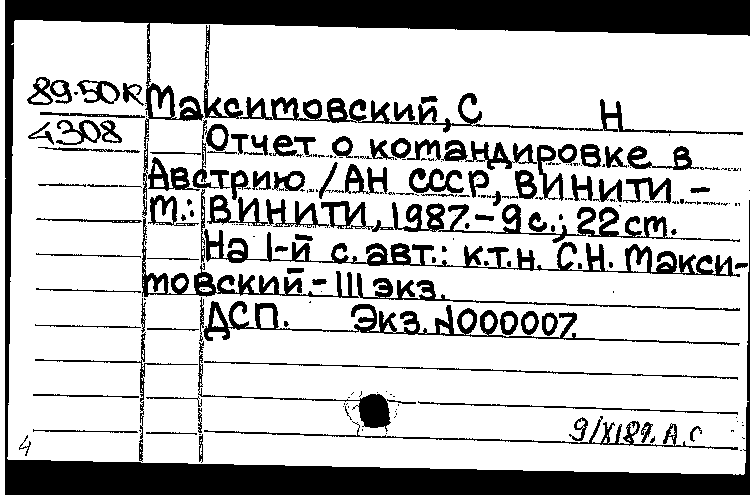 89-50К Максимовский, С Н
4308 Отчет о командировке в
Австрию / АН СССР, ВИНИТИ. -
М.: ВИНИТИ, 1987. - 9 с.; 22 см.
На 1-й с. авт.: к.т.н. С.Н. Макси-
мовский. - 111 экз.
ДСП. Экз. N000007.
9/XI89. А.С
4